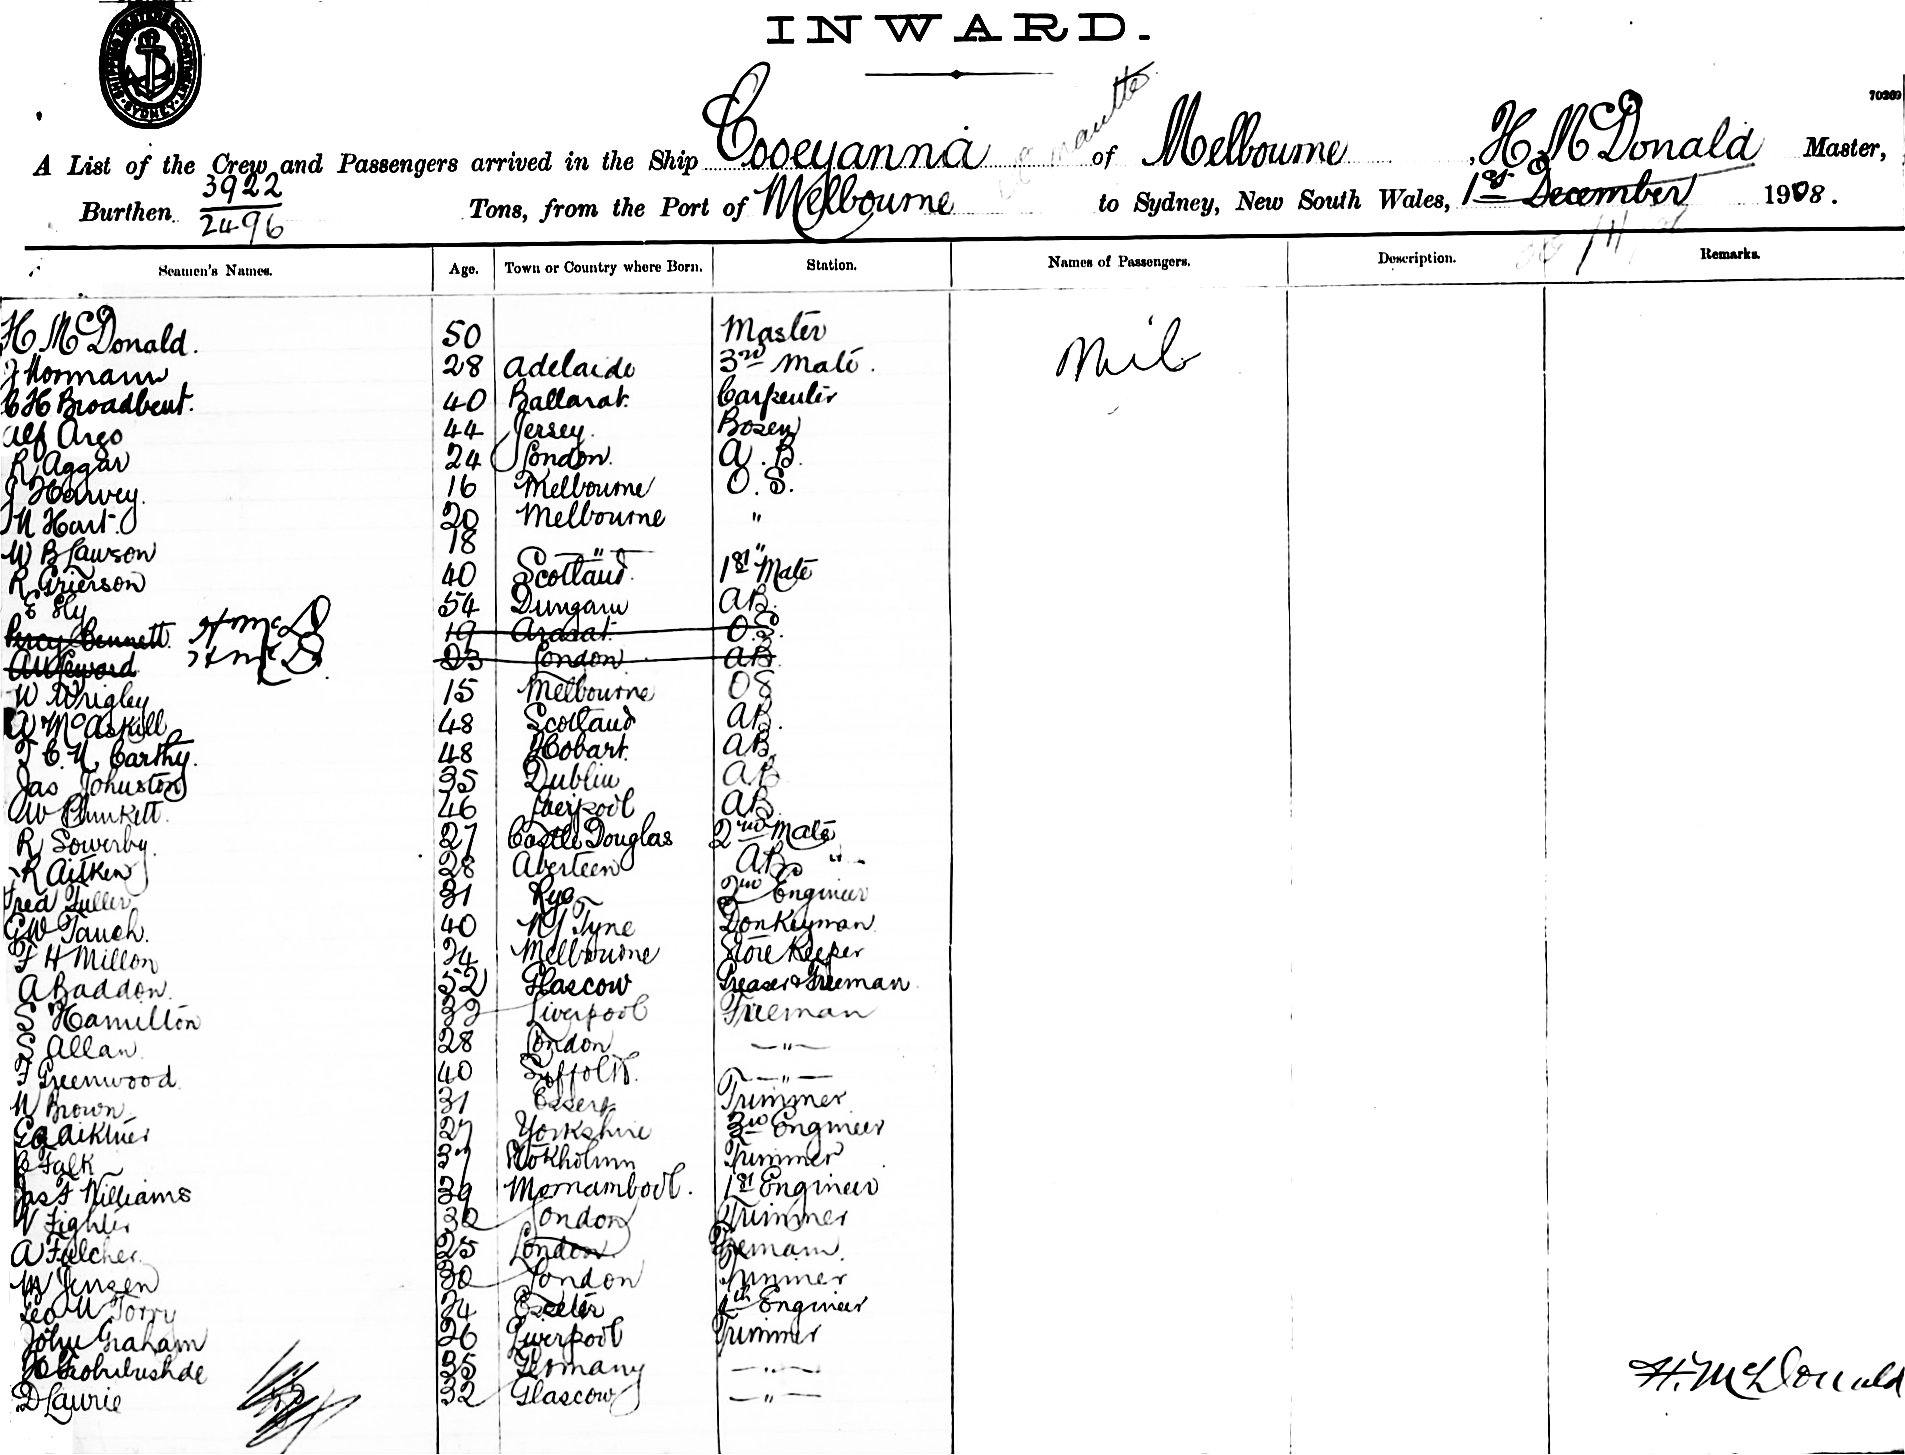 INWARD.
SHIPPING MASTERS DEPARTMENT SYDNEY
70269
A List of the Crew and Passengers arrived in the Ship Cooeyanna of Melbourne, H McDonald Master,
Burthen 3922 / 2496 Tons, from the Port of Melbourne to Sydney, New South Wales, 1st December 1908.
Seamen's Names. Age. Town or Country where Born. Station. Names of Passengers. Description. Remarks.
H McDonald. 50 Master Nil
J Normann 28 Adelaide 3rd Mate.
C H Broadbent. 40 Ballarat. Carpenter
Alf Argo 44 Jersey. Bosen
R Aggar 24 London. A.B.
J Harvey. 16 Melbourne O.S.
M Hart. 20 Melbourne "
W B Lawson 18 " "
R Grierson 40 Scotland. 1st Mate
E Ely 54 Dungarn AB.
Percy Bennett. H McD 19 Ararat. O.S.
A W Seward H McD 23 London AB.
W Wrigley 15 Melbourne OS
A McAskill 48 Scotland AB.
T C. N. Carthy. 48 Hobart. AB
Jas Johnston 35 Dublin AB
W Plunkett. 46 Liverpool AB
R Sowerby. 27 Castle Douglas 2nd Mate
R Aitken 28 Aberteen AB "
Fred Fuller 31 Rye 2nd Engineer
G W Tauch. 40 N/Tyne Donkeyman
F H Millon 24 Melbourne Store Keeper
A Baddon. 52 Glascow Greaser & Fireman
S Hamilton 32 Liverpool Fireman
S Allan 28 London "
F Greenwood. 40 Suffolk. "
W Brown 31 Essex Trimmer
27 Yorkshire 3rd Engineer
Falk 37 Stokholmn Trimmer
Jas F Williams 39 Wornambool. 1st Engineer
W Fighter 32 London Trimmer
A Fulcher. 25 London Fireman.
W Jensen 30 London Trimmer
Geo W Torry 24 Exeter 4th Engineer
John Graham 26 Liverpool Trimmer
35 Germany "
D Laurie 32 Glascow "
H. McDonald